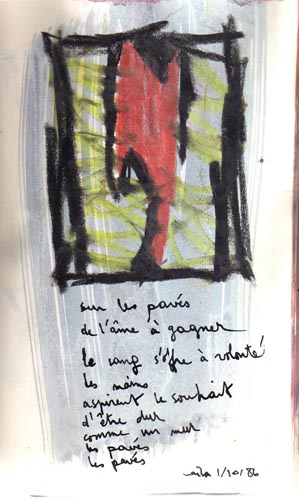 sur les pavés
de l'âme à gagner
le sang s'offre à volonté
les mains
aspirent le souhait
d'être dur
comme un mur
les pavés
les pavés
1/10/86